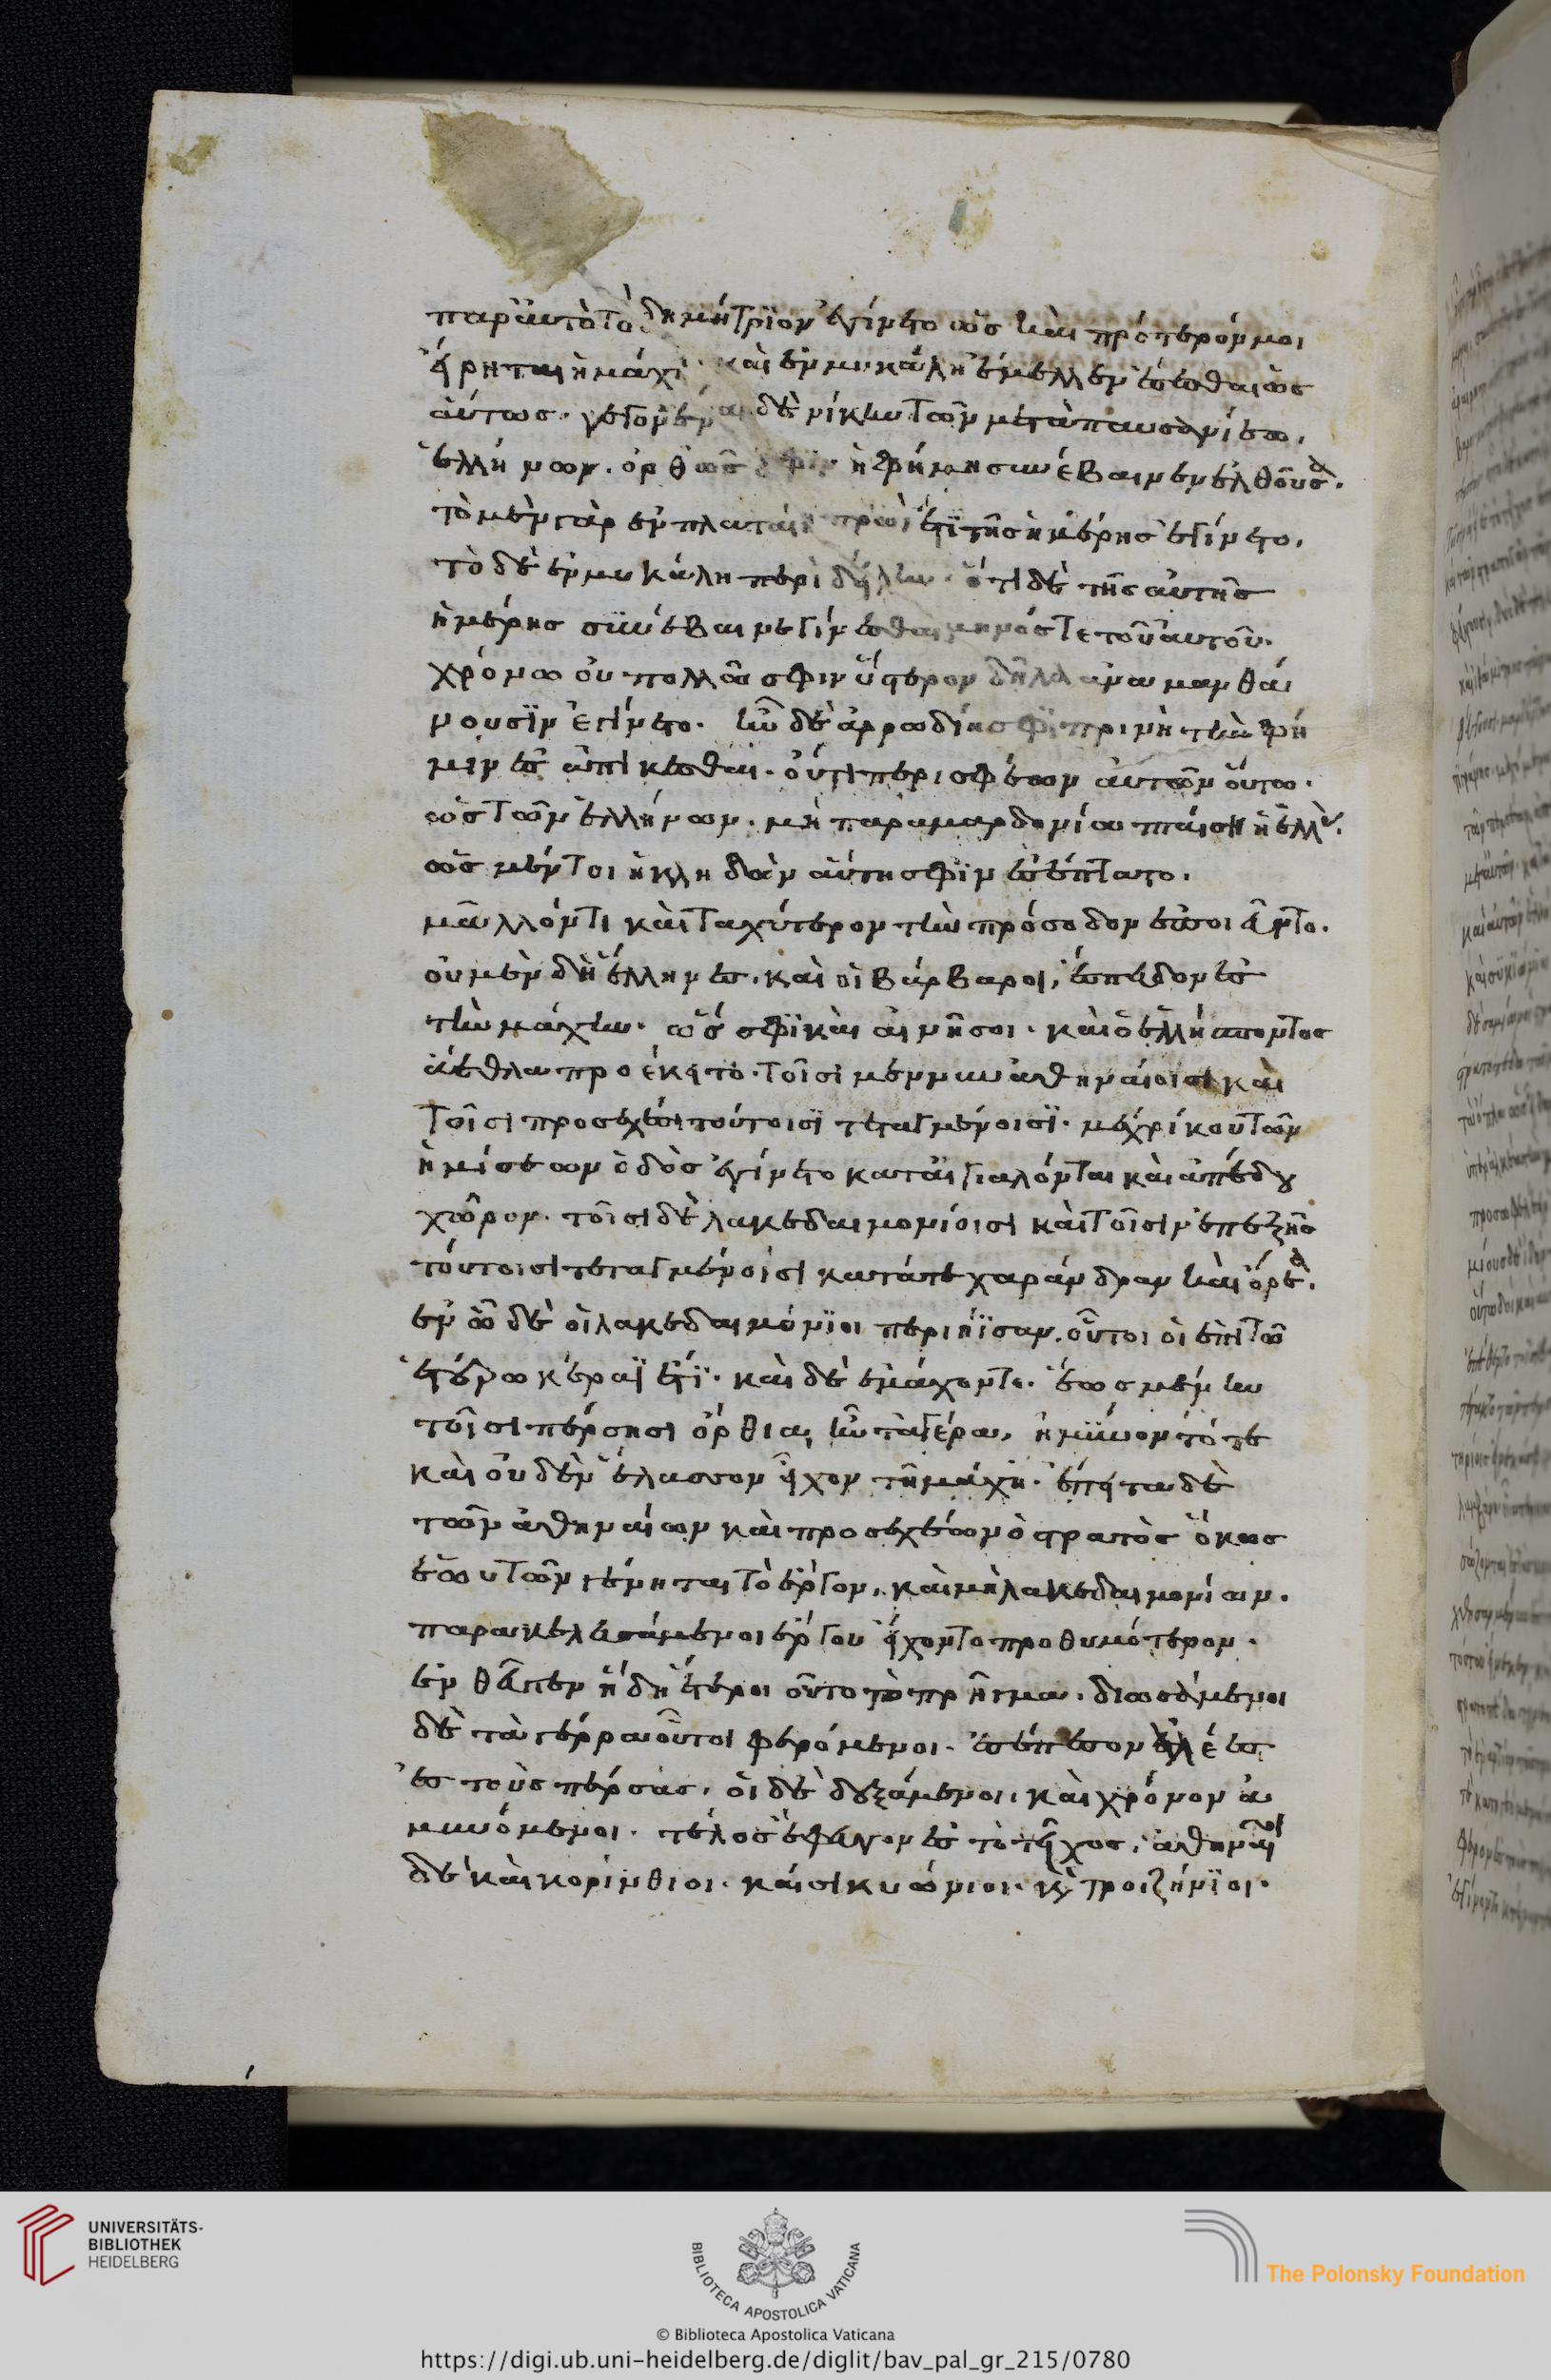 παρ' αὐτὸ τὸ δημήτριον ἐγίνετο ὡς καὶ πρότερόν μοι
εἴρηται ἡ μάχη· καὶ ἐν μυκάλη ἔμελλεν ἔσεσθαι ὡς
αύτως· γεγονέναι δὲ νίκην τῶν μετὰ παυσανίεω,
ἑλλήνων. ὀρθῶς σφιν ἡ φήμη συνέβαινεν ἐλθοῦσα.
τὸ μὲν γὰρ ἐν πλαταιῆ πρωῒ ἔτι τῆς ἡμέρης ἐγίνετο,
τὸ δὲ ἐν μυκάλη περὶ δείλην· ὅτι δὲ τῆς αὐτῆς
ἡμέρης συνέβαινε γίνεσθαι μηνός τε τοῦ αὐτοῦ·
χρόνω οὐ πολλῶ σφιν ὕστερον δῆλα ἀναμανθά
νουσιν ἐγίνετο. ἦν δὲ ἀρρωδίη σφι πρὶν ἢ τὴν φή
μην ἐσαπικέσθαι. οὔτι περὶ σφέων αὐτέων οὕτω·
ὡς τῶν ἑλλήνων. μὴ παρὰ μαρδονίω πταίση ἡ ἑλλὰς.
ὡς μέντοι ἡ κληδὼν αὕτη σφιν ἐσέπτατο.
μᾶλλόν τι καὶ ταχύτερον τὴν πρόσοδον ἐποιεῦντο.
οἱ μὲν δὴ ἕλληνες. καὶ οἱ βάρβαροι, ἔσπευδον ἐς
τὴν μάχην. ὥς σφι καὶ αἱ νῆσοι. καὶ ὁ ἑλλήσποντος
ἄεθλα προέκειτο. τοῖσι μέν νυν ἀθηναίοισι καὶ
τοῖσι προσεχέσι τούτοισι τεταγμένοισι· μέχρί κου τῶν
ἡμίσεων ὁδὸς ἐγίνετο κατ' αἰγιαλόν τε καὶ ἄπεδον
χῶρον. τοῖσι δὲ λακεδαιμονίοισι καὶ τοῖσιν ἐπεξῆς
τούτοισι τεταγμένοισι κατά τε χαράνδραν καὶ ὄρεα.
ἐν ὧ δὲ οἱ λακεδαιμόνιοι περιήισαν. οὗτοι οἱ ἐπὶ τῶ
ἑτέρω κέραϊ ἔτι· καὶ δὲ ἐμάχοντο. ἕως μέν νυν
τοῖσι πέρσησι ὄρθια ἦν τὰ γέρρα, ἠμύνοντό τε
καὶ οὐδὲν ἔλασσον εἶχον τῆ μάχη. ἐπεί τε δὲ
τῶν ἀθηναίων καὶ προσεχέων ὁ στρατὸς ὅκως
ἑωυτῶν γένηται τὸ ἔργον, καὶ μὴ λακεδαιμονίων.
παρακελευσάμενοι ἔργου εἴχοντο προθυμότερον.
ἐνθεῦτεν ἤδη ἑτεροιοῦτο τὸ πρῆγμα. διωσάμενοι
δὲ τὰ γέρρα οὗτοι φερόμενοι. ἐσέπεσον ἁλέες
ἐς τοὺς πέρσας, οἱ δὲ δεξάμενοι, καὶ χρόνον ἀ
μυνόμενοι. τέλος ἔφευγον ἐς τὸ τεῖχος, ἀθηναῖοι
δὲ καὶ κορίνθιοι. καὶ σικυώνιοι. καὶ τροιζήνιοι.
UNIVERSITÄTS-
BIBLIOTHEK
HEIDELBERG
BIBLIOTECA APOSTOLICA VATICANA
The Polonsky Foundation
© Biblioteca Apostolica Vaticana
https://digi.ub.uni-heidelberg.de/diglit/bav_pal_gr_215/0780